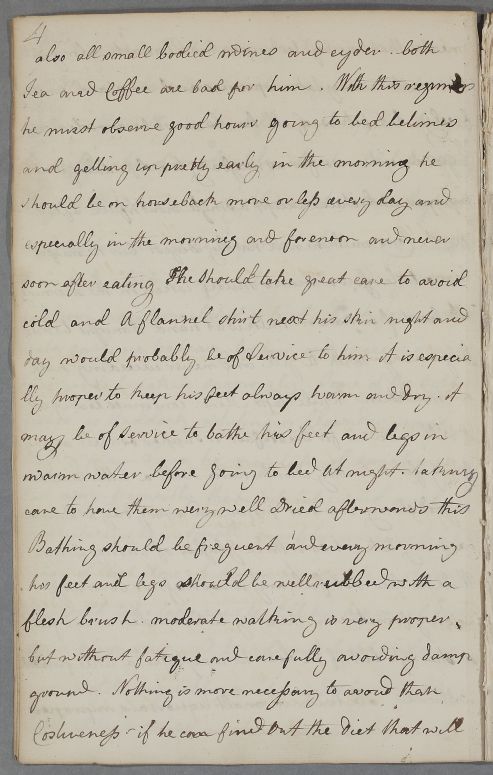 4
also all small bodied wines and cyder. both
Tea and Coffee are bad for him. With this regimens
he must observe good hours going to bed betimes
and getting up pretty early in the morning he
should be on horseback more or less every day and
especially in the morning and forenoon and never
soon after eating He should take great care to avoid
cold and A flannel shirt next his skin night and
day would probably be of Service to him it is especia
lly proper to keep his feet always warm and Dry. it
may be of Service to bathe his feet and legs in
warm water before going to bed at night. taking
care to have them very well Dried afterwards this
Bathing should be frequent and every morning
his feet and legs should be well rubbed with a
flesh brush. moderate walking is very proper,
but without fatigue and carefully avoiding damp
ground. Nothing is more necessary to avoid than
Costiveness - if he can find out the diet that will